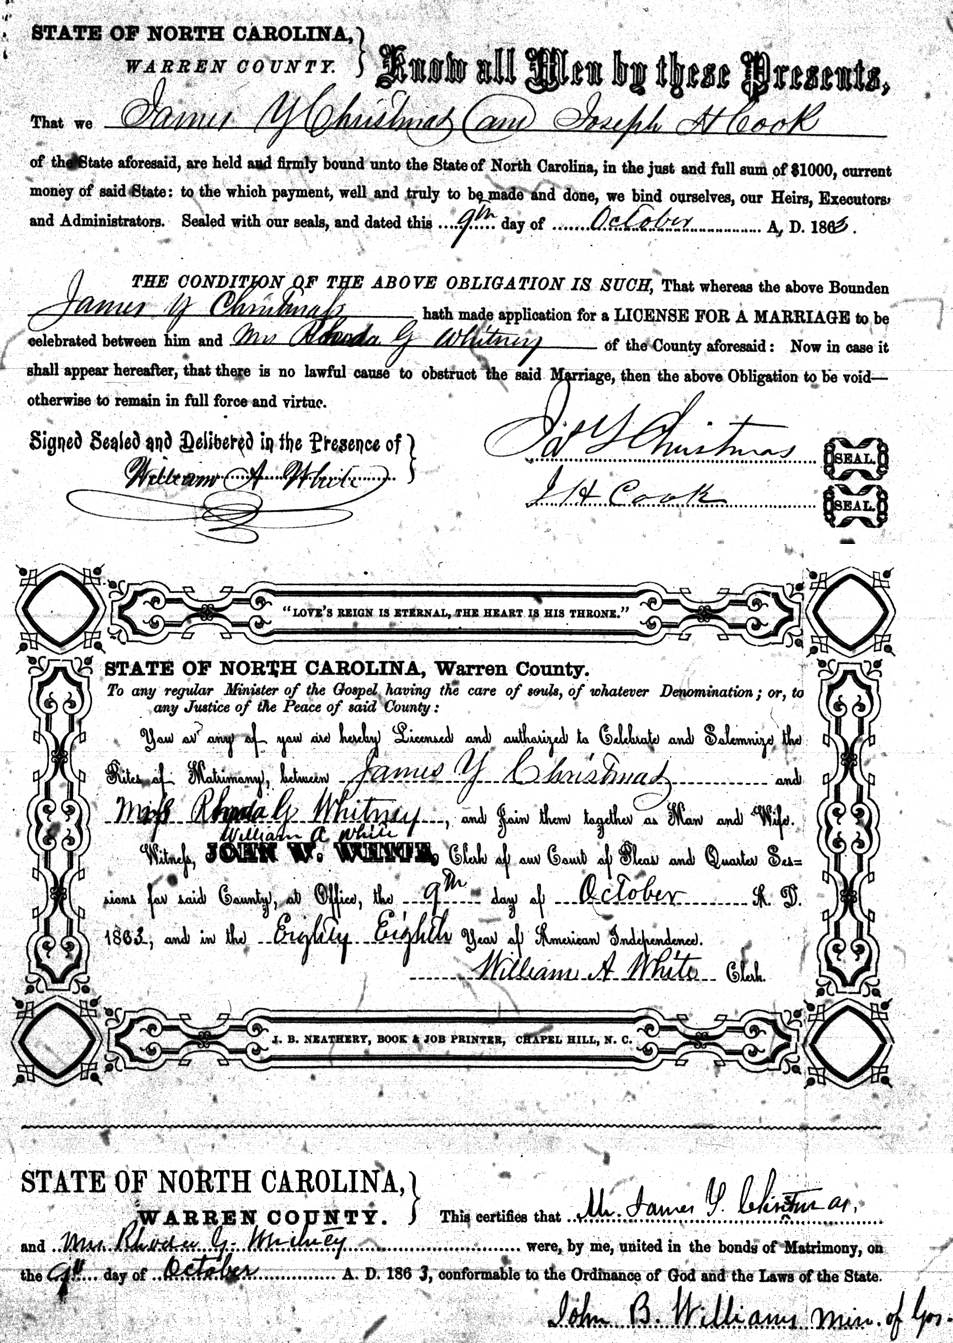 STATE OF NORTH CAROLINA,
WARREN COUNTY.
Know all Men by these Presents,
That we James Y Christmas and Joseph H Cook
of the State aforesaid, are held and firmly bound unto the State of North Carolina, in the just and full sum of $1000, current
money of said State: to the which payment, well and truly to be made and done, we bind ourselves, our Heirs, Executors,
and Administrators. Sealed with our seals, and dated this 9th day of October A, D. 1863.
THE CONDITION OF THE ABOVE OBLIGATION IS SUCH, That whereas the above Bounden
James Y Christmass hath made application for a LICENSE FOR A MARRIAGE to be
celebrated between him and Mrs Rhoda G Whitney of the County aforesaid: Now in case it
shall appear hereafter, that there is no lawful cause to obstruct the said Marriage, then the above Obligation to be void—
otherwise to remain in full force and virtue.
Signed Sealed and Delibered in the Presence of
William A White
Jas Y Christmas SEAL.
J H Cook SEAL.
"LOVE'S REIGN IS ETERNAL, THE HEART IS HIS THRONE."
STATE OF NORTH CAROLINA, Warren County.
To any regular Minister of the Gospel having the care of souls, of whatever Denomination; or, to
any Justice of the Peace of said County:
You or any of you are hereby Licensed and authorized to Celebrate and Solemnize the
Rites of Matrimony, between James Y Christmas and
Mrs Rhoda G Whitney, and Join them together as Man and Wife.
William A White
Witness, JOHN W. WHITE, Clerk of our Court of Pleas and Quarter Ses=
sions for said County, at Office, the 9th day of October A. D.
1863, and in the Eighty Eighth Year of American Independence.
William A White Clerk.
J. B. NEATHERY, BOOK & JOB PRINTER, CHAPEL HILL, N. C.
STATE OF NORTH CAROLINA,
WARREN COUNTY.
This certifies that Mr. James Y. Christmas,
and Mrs Rhoda G. Whitney were, by me, united in the bonds of Matrimony, on
the 9th day of October A. D. 1863, conformable to the Ordinance of God and the Laws of the State.
John B. Williams Min. of Gos.